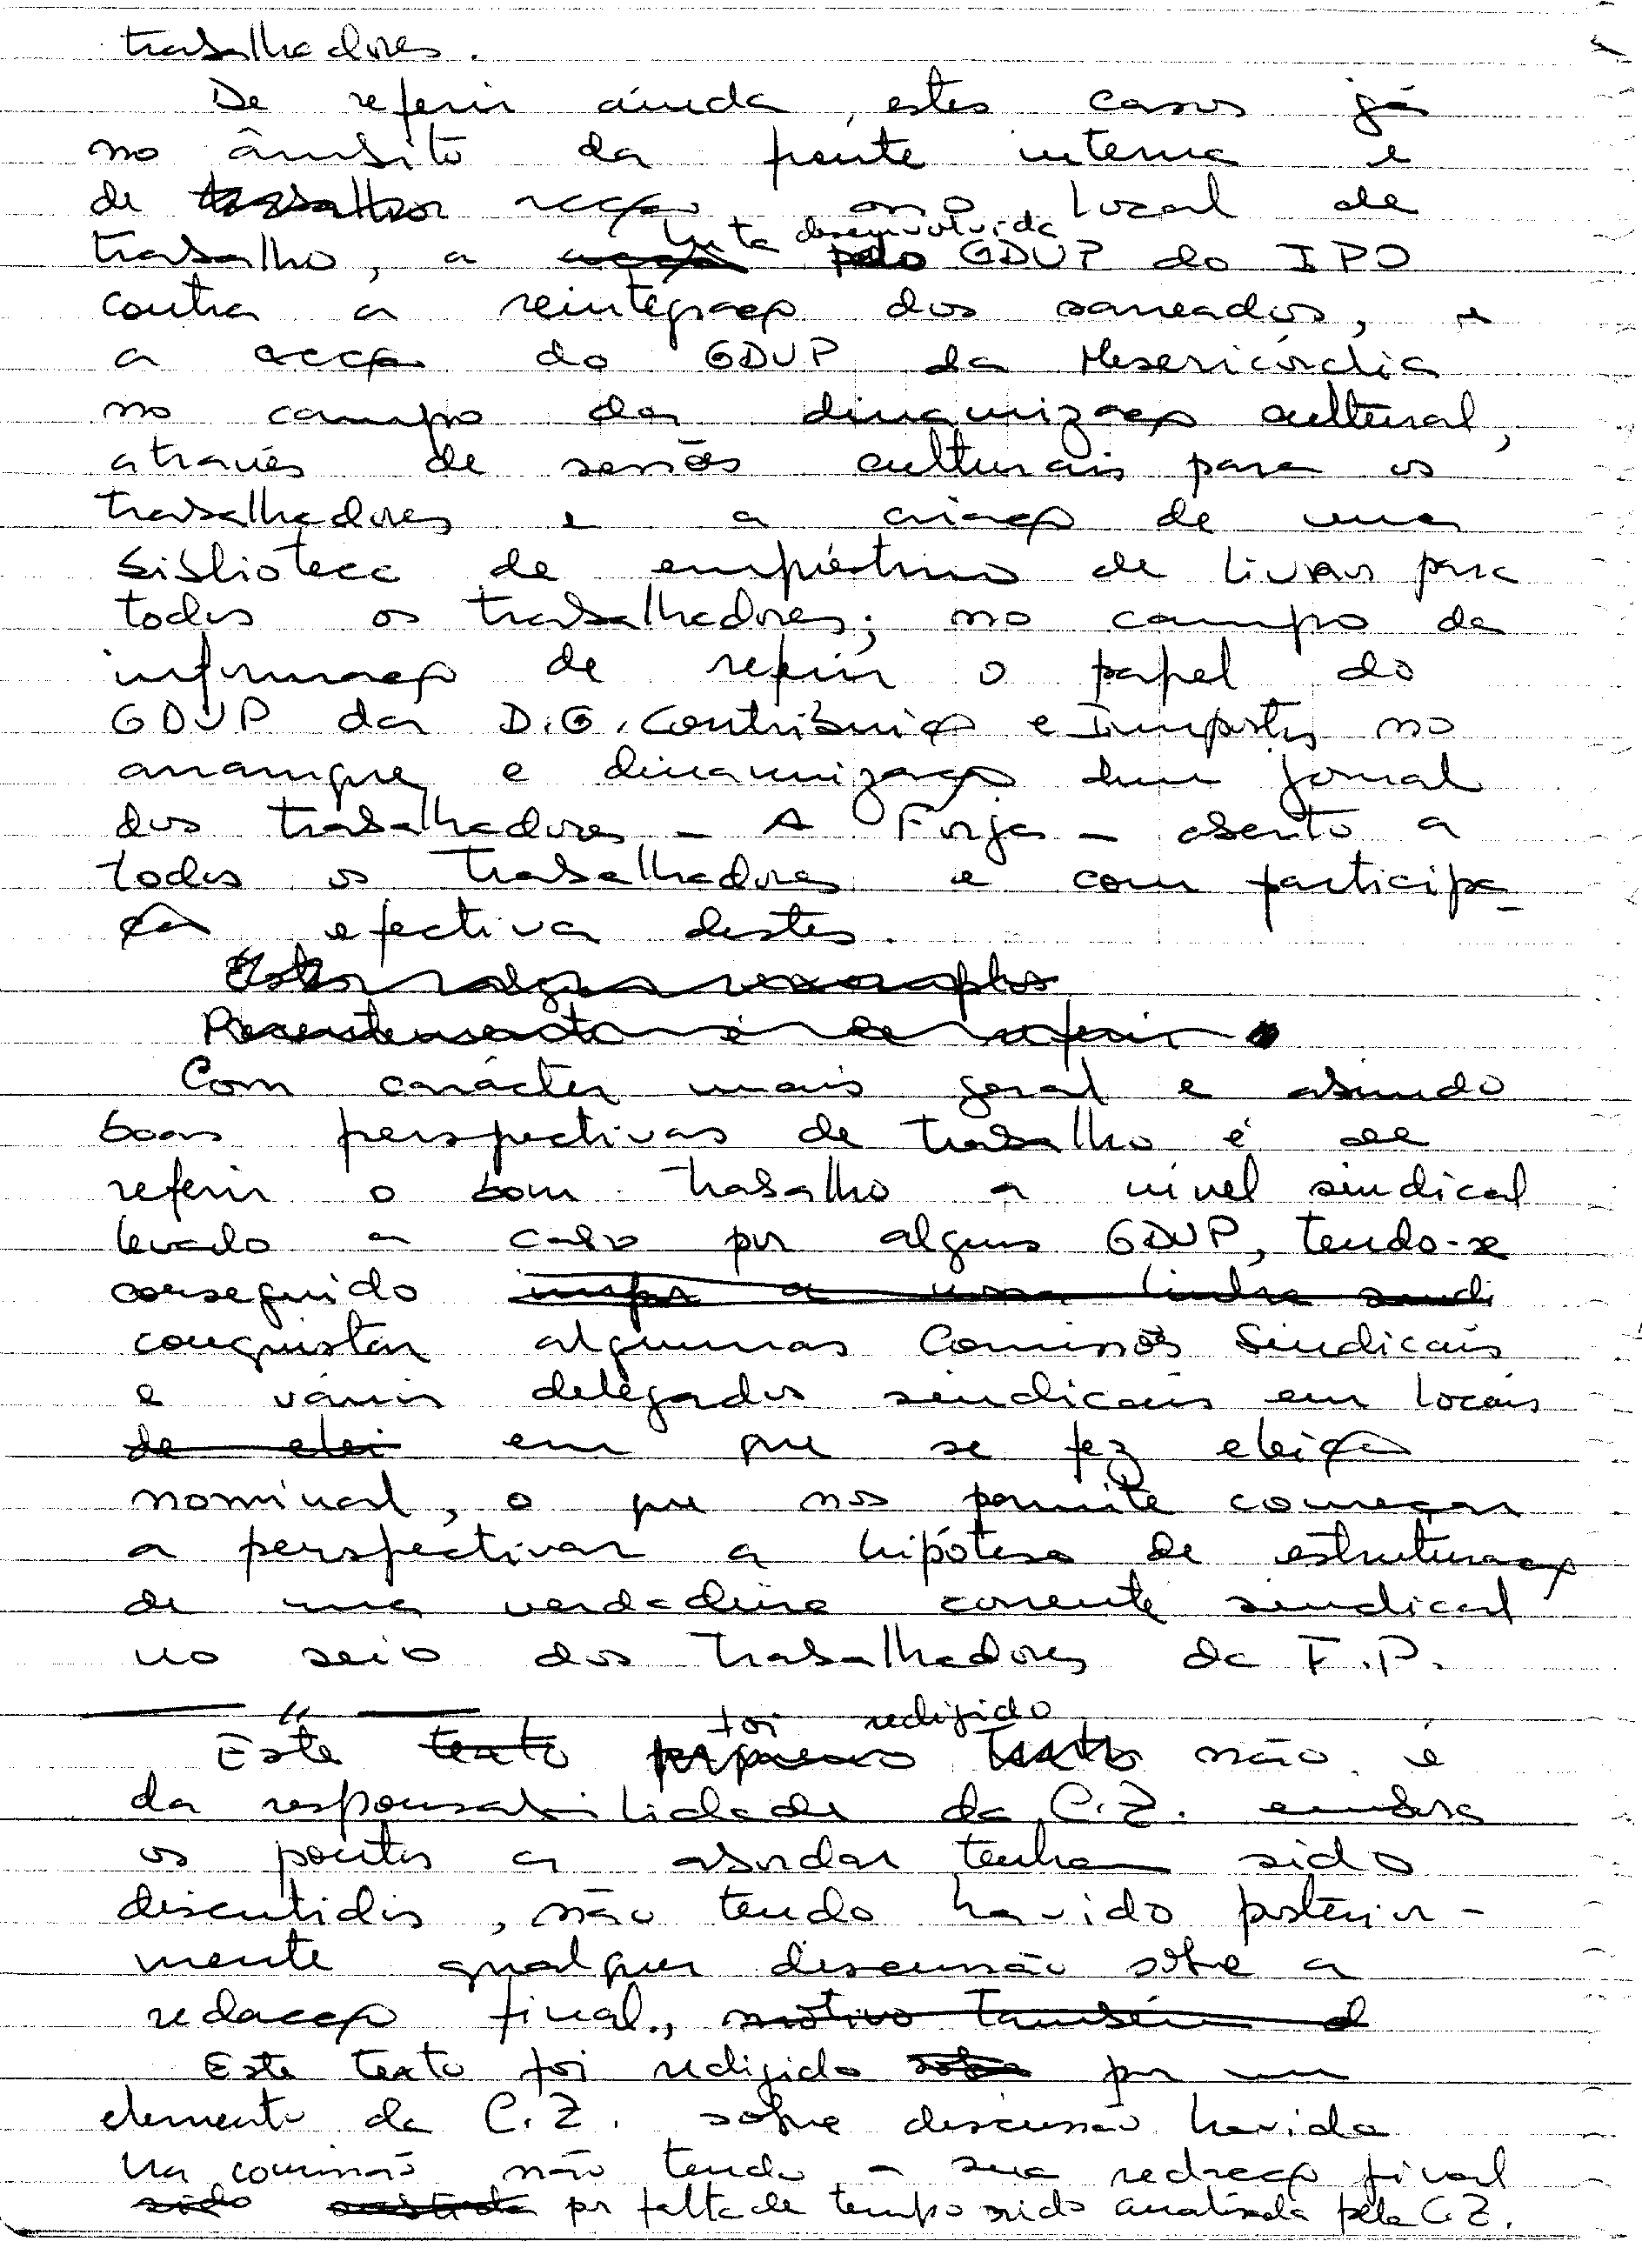 trabalhadores.
De referir ainda, estes casos já
no âmbito da frente interna e
de trabalhor acção no local de
trabalho, a acção luta desenvolvida pelo GDUP do IPO
contra a reintegração dos saneados, e
a acção do GDUP da Misericórdia
no campo da dinamização cultural,
através de sessões culturais para os
trabalhadores e a criação de uma
biblioteca de empréstimo de livros para
todos os trabalhadores; no campo da
informação de referir o papel do
GDUP da D.G. Contribuição e Impostos no
arranque e dinamização dum jornal
dos trabalhadores – A Forja – aberto a
todos os trabalhadores e com participa-
ção efectiva destes.
Estes alguns exemplos
Recentemente é de referir
Com carácter mais geral e abrindo
boas perspectivas de trabalho é de
referir o bom trabalho a nível sindical
levado a cabo por alguns GDUP, tendo-se
conseguido impor a nossa linha sindi
conquistar algumas Comissões Sindicais
e vários delegados sindicais em locais
de elei em que se fez eleição
nominal, o que nos permite começar
a perspectivar a hipótese de estruturação
de uma verdadeira corrente sindical
no seio dos trabalhadores da F.P.
"
foi redigido
Este texto não é
da responsabilidade da C.Z. embora
os pontos a abordar tenham sido
discutidos, não tendo havido posterior-
mente qualquer discussão sobre a
redacção final., motivo também d
Este texto foi redigido sobre por um
elemento da C.Z. sobre discussão havida
na comissão não tendo a sua redacção final
sido por falta de tempo sido analisada pela C.Z.